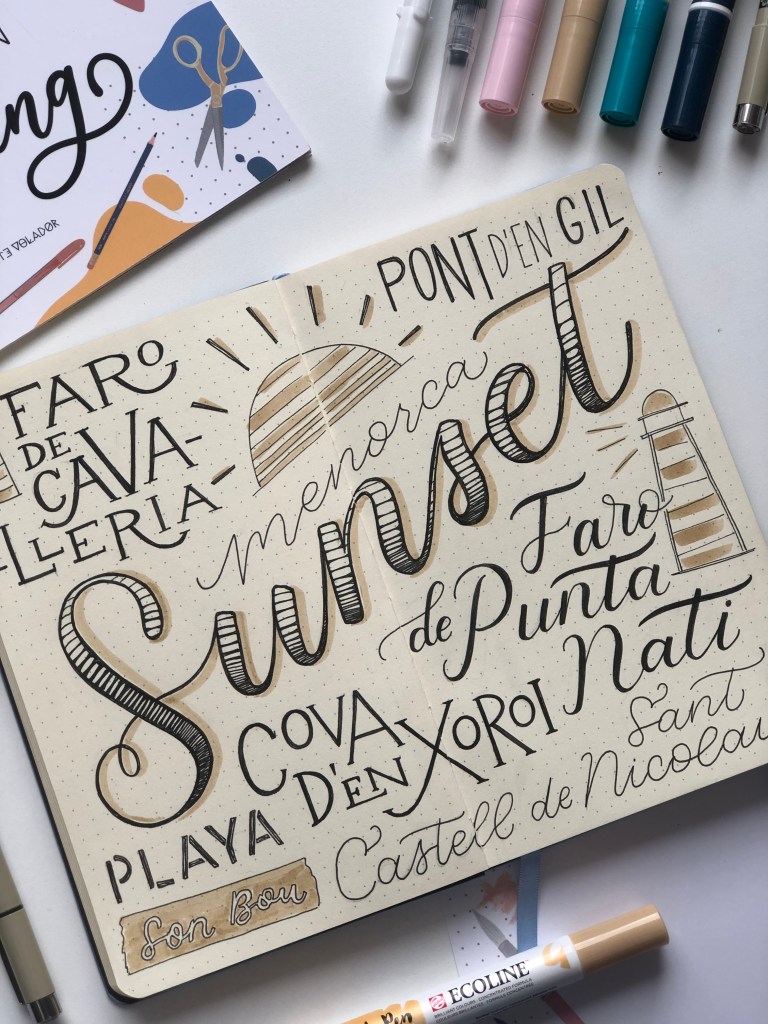 PONT D'EN GIL
FARO
DE CAVA-
LLERIA
menorca
Sunset
Faro
de Punta
Nati
COVA
D'EN XOROI
PLAYA
Son Bou
Castell de Sant Nicolau
ECOLINE
Pen